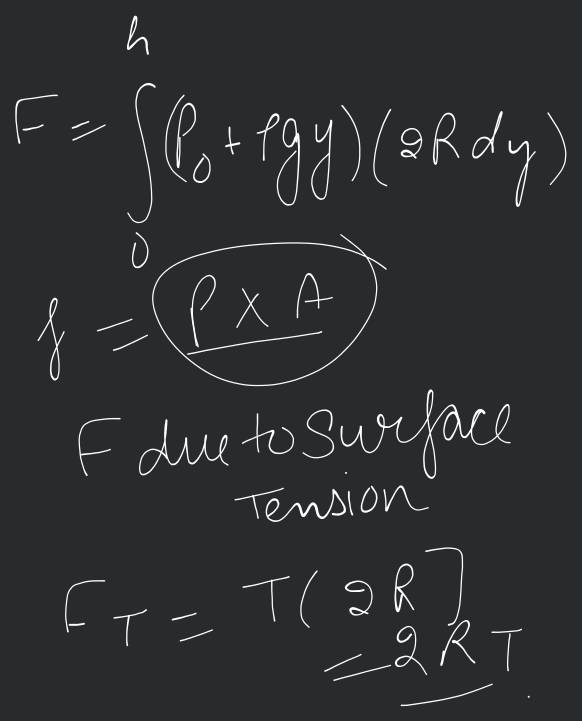 h
F = ∫ (P₀ + ρgy)(2R dy)
0
f = P × A
F due to Surface
Tension
F_T = T(2R]
= 2RT